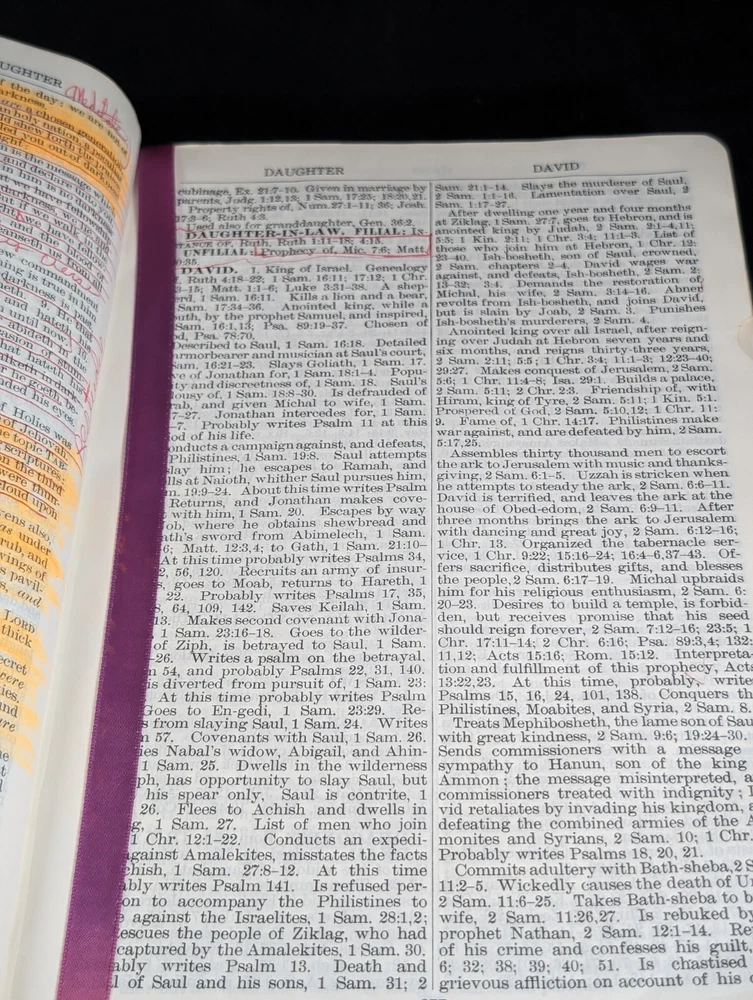 UGHTER
of the day: we are not of
arkness.
are a chosen generation
holy nation
d shew forth the
lled you out of dark
ght
is the message which
and declare unto
danseth us from
ew commandment
ing is true in him
darkness is past
until now.
abideth in
and that hateth
walketh in dark
nded his eyes.
of Holies was
of Jehovah
the topic TAB-
scriptures:
on the third
were thun-
cloud upon
vens also,
as under
rub, and
wings of
s pavil-
s, and
LORD
thick
ecret
were
ies.
and
are
the
DAUGHTER
cubinage, Ex. 21:7-10. Given in marriage by
parents, Judg. 1:12,13; 1 Sam. 17:25; 18:20,21.
Property rights of, Num. 27:1-11; 36; Josh.
17:3-6; Ruth 4:3.
Used also for granddaughter, Gen. 36:2.
DAUGHTER-IN-LAW. FILIAL: IN-
STANCE OF, Ruth, Ruth 1:11-18; 4:15.
UNFILIAL: Prophecy of, Mic. 7:6; Matt.
10:35.
DAVID. 1. King of Israel. Genealogy
Ruth 4:18-22; 1 Sam. 16:11; 17:12; 1 Chr.
3-15; Matt. 1:1-6; Luke 3:31-38. A shep-
erd, 1 Sam. 16:11. Kills a lion and a bear,
Sam. 17:34-36. Anointed king, while a
outh, by the prophet Samuel, and inspired,
Sam. 16:1,13; Psa. 89:19-37. Chosen of
d, Psa. 78:70.
Described to Saul, 1 Sam. 16:18. Detailed
rmorbearer and musician at Saul's court,
am. 16:21-23. Slays Goliath, 1 Sam. 17.
ve of Jonathan for, 1 Sam. 18:1-4. Popu-
ity and discreetness of, 1 Sam. 18. Saul's
lousy of, 1 Sam. 18:8-30. Is defrauded of
rab, and given Michal to wife, 1 Sam.
7-27. Jonathan intercedes for, 1 Sam.
-7. Probably writes Psalm 11 at this
iod of his life.
onducts a campaign against, and defeats,
Philistines, 1 Sam. 19:8. Saul attempts
lay him; he escapes to Ramah, and
lls at Naioth, whither Saul pursues him,
m. 19:9-24. About this time writes Psalm
Returns, and Jonathan makes cove-
with him, 1 Sam. 20. Escapes by way
ob, where he obtains shewbread and
ath's sword from Abimelech, 1 Sam.
6; Matt. 12:3,4; to Gath, 1 Sam. 21:10-
At this time probably writes Psalms 34,
2, 56, 120. Recruits an army of insur-
s, goes to Moab, returns to Hareth, 1
22. Probably writes Psalms 17, 35,
, 64, 109, 142. Saves Keilah, 1 Sam.
13. Makes second covenant with Jona-
1 Sam. 23:16-18. Goes to the wilder-
of Ziph, is betrayed to Saul, 1 Sam.
-26. Writes a psalm on the betrayal,
m 54, and probably Psalms 22, 31, 140.
is diverted from pursuit of, 1 Sam. 23:
At this time probably writes Psalm
Goes to En-gedi, 1 Sam. 23:29. Re-
s from slaying Saul, 1 Sam. 24. Writes
m 57. Covenants with Saul, 1 Sam. 26.
ies Nabal's widow, Abigail, and Ahin-
1 Sam. 25. Dwells in the wilderness
ph, has opportunity to slay Saul, but
his spear only, Saul is contrite, 1
26. Flees to Achish and dwells in
g, 1 Sam. 27. List of men who join
1 Chr. 12:1-22. Conducts an expedi-
against Amalekites, misstates the facts
chish, 1 Sam. 27:8-12. At this time
ably writes Psalm 141. Is refused per-
on to accompany the Philistines to
e against the Israelites, 1 Sam. 28:1,2;
escues the people of Ziklag, who had
captured by the Amalekites, 1 Sam. 30.
ably writes Psalm 13. Death and
l of Saul and his sons, 1 Sam. 31; 2
DAVID
Sam. 21:1-14. Slays the murderer of Saul,
2 Sam. 1:1-16. Lamentation over Saul, 2
Sam. 1:17-27.
After dwelling one year and four months
at Ziklag, 1 Sam. 27:7, goes to Hebron, and is
anointed king by Judah, 2 Sam. 2:1-4,11;
5:5; 1 Kin. 2:11; 1 Chr. 3:4; 11:1-3. List of
those who join him at Hebron, 1 Chr. 12:
23-40. Ish-bosheth, son of Saul, crowned,
2 Sam. chapters 2-4. David wages war
against, and defeats, Ish-bosheth, 2 Sam. 2:
13-32; 3:4. Demands the restoration of
Michal, his wife, 2 Sam. 3:14-16. Abner
revolts from Ish-bosheth, and joins David,
but is slain by Joab, 2 Sam. 3. Punishes
Ish-bosheth's murderers, 2 Sam. 4.
Anointed king over all Israel, after reign-
ing over Judah at Hebron seven years and
six months, and reigns thirty-three years,
2 Sam. 2:11; 5:5; 1 Chr. 3:4; 11:1-3; 12:23-40;
29:27. Makes conquest of Jerusalem, 2 Sam.
5:6; 1 Chr. 11:4-8; Isa. 29:1. Builds a palace,
2 Sam. 5:11; 2 Chr. 2:3. Friendship of, with
Hiram, king of Tyre, 2 Sam. 5:11; 1 Kin. 5:1.
Prospered of God, 2 Sam. 5:10,12; 1 Chr. 11:
9. Fame of, 1 Chr. 14:17. Philistines make
war against, and are defeated by him, 2 Sam.
5:17,25.
Assembles thirty thousand men to escort
the ark to Jerusalem with music and thanks-
giving, 2 Sam. 6:1-5. Uzzah is stricken when
he attempts to steady the ark, 2 Sam. 6:6-11.
David is terrified, and leaves the ark at the
house of Obed-edom, 2 Sam. 6:9-11. After
three months brings the ark to Jerusalem
with dancing and great joy, 2 Sam. 6:12-16;
1 Chr. 13. Organized the tabernacle ser-
vice, 1 Chr. 9:22; 15:16-24; 16:4-6,37-43. Of-
fers sacrifice, distributes gifts, and blesses
the people, 2 Sam. 6:17-19. Michal upbraids
him for his religious enthusiasm, 2 Sam. 6:
20-23. Desires to build a temple, is forbid-
den, but receives promise that his seed
should reign forever, 2 Sam. 7:12-16; 23:5; 1
Chr. 17:11-14; 2 Chr. 6:16; Psa. 89:3,4; 132:
11,12; Acts 15:16; Rom. 15:12. Interpreta-
tion and fulfillment of this prophecy, Acts
13:22,23. At this time, probably, write
Psalms 15, 16, 24, 101, 138. Conquers th
Philistines, Moabites, and Syria, 2 Sam. 8.
Treats Mephibosheth, the lame son of Sau
with great kindness, 2 Sam. 9:6; 19:24-30.
Sends commissioners with a message
sympathy to Hanun, son of the king
Ammon; the message misinterpreted, a
commissioners treated with indignity; I
vid retaliates by invading his kingdom, a
defeating the combined armies of the A
monites and Syrians, 2 Sam. 10; 1 Chr.
Probably writes Psalms 18, 20, 21.
Commits adultery with Bath-sheba, 2 S
11:2-5. Wickedly causes the death of U
2 Sam. 11:6-25. Takes Bath-sheba to b
wife, 2 Sam. 11:26,27. Is rebuked by
prophet Nathan, 2 Sam. 12:1-14. Re
of his crime and confesses his guilt,
6; 32; 38; 39; 40; 51. Is chastised
grievous affliction on account of his c